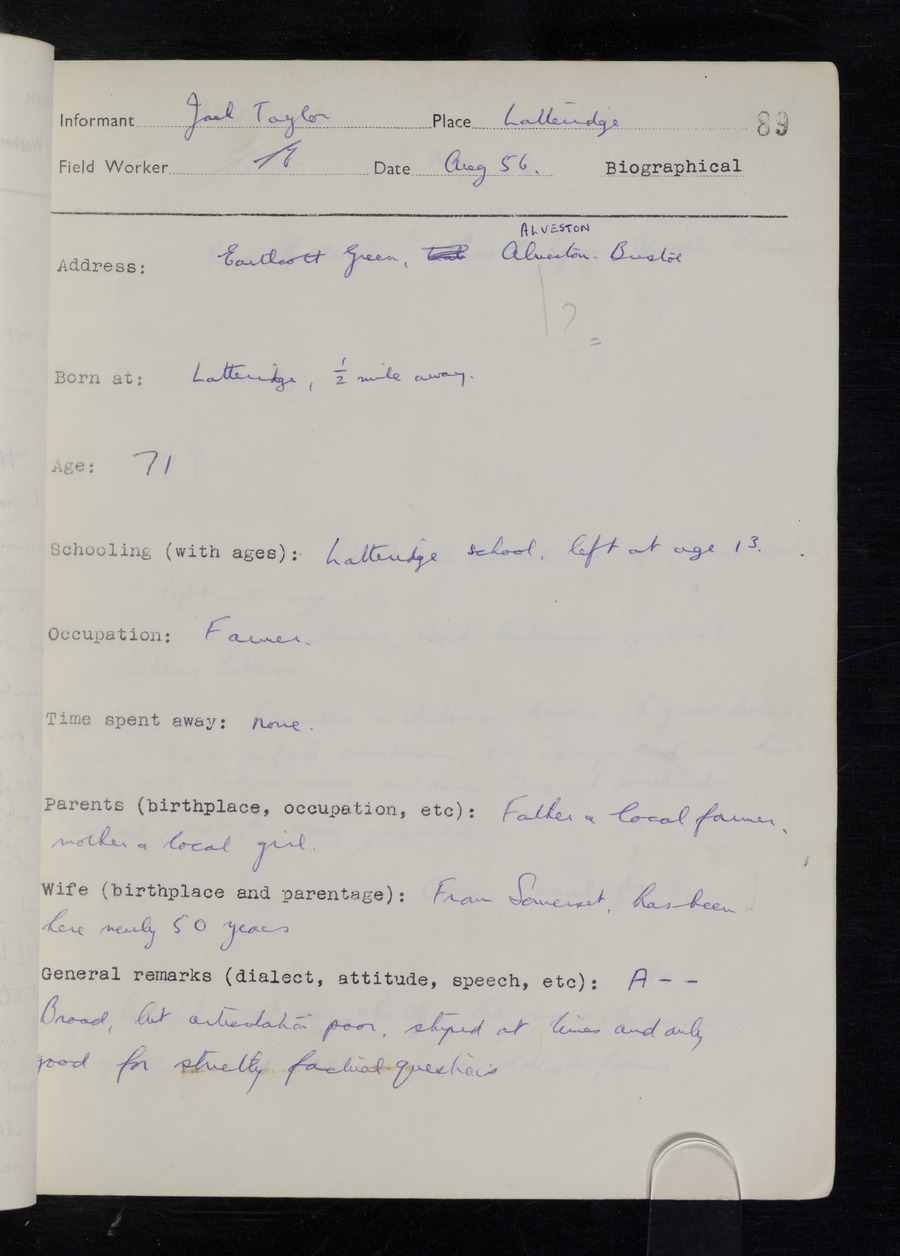 Informant Jack Taylor Place Latteridge 89
Field Worker Date Aug 56. Biographical
ALVESTON
Address: Earthcott Green, Alveston. Bristol
?
Born at: Latteridge, ½ mile away.
Age: 71
Schooling (with ages): Latteridge school. left at age 13.
Occupation: Farmer.
Time spent away: none.
Parents (birthplace, occupation, etc): Father a local farmer,
mother a local girl.
Wife (birthplace and parentage): From Somerset, has been
here nearly 50 years
General remarks (dialect, attitude, speech, etc): A - -
Broad, but articulation poor, stupid at times and only
good for strictly factual questions